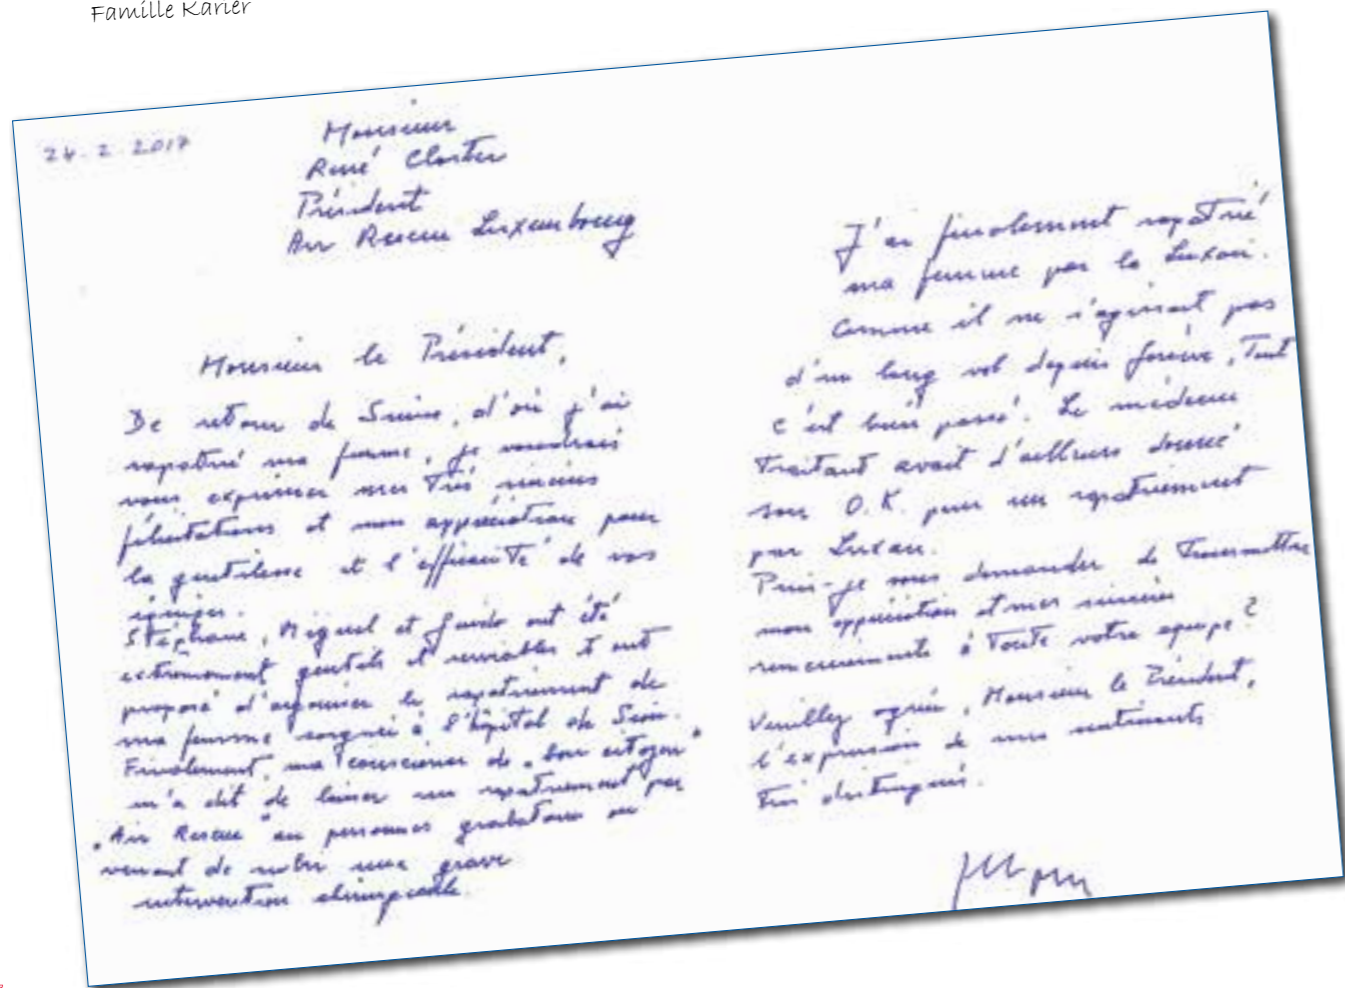 Famille Karier
24.2.2017
Monsieur
René Closter
Président
Air Rescue Luxembourg
Monsieur le Président,
De retour de Suisse, d'où j'ai
rapatrié ma femme, je voudrais
vous exprimer mes très sincères
félicitations et mon appréciation pour
la gentillesse et l'efficacité de vos
équipes.
Stéphane, Miguel et Guido ont été
extrêmement gentils et serviables et ont
proposé d'organiser le rapatriement de
ma femme soignée à l'hôpital de Sion.
Finalement, ma conscience de "bon citoyen"
m'a dit de laisser un rapatriement par
"Air Rescue" aux personnes grabataires ou
venant de subir une grave
intervention chirurgicale.
J'ai finalement rapatrié
ma femme par la Luxair.
Comme il ne s'agissait pas
d'un long vol depuis Genève, tout
s'est bien passé. Le médecin
traitant avait d'ailleurs donné
son O.K. pour un rapatriement
par Luxair.
Puis-je vous demander de transmettre
mon appréciation et mes sincères
remerciements à toute votre équipe?
Veuillez agréer, Monsieur le Président,
l'expression de mes sentiments
très distingués.